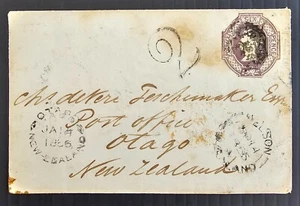 2
Chs de Vere Teschemaker Esqr
Post office
Otago
New Zealand
OTAGO
JA
1856
NEW-ZEALAND
NELSON